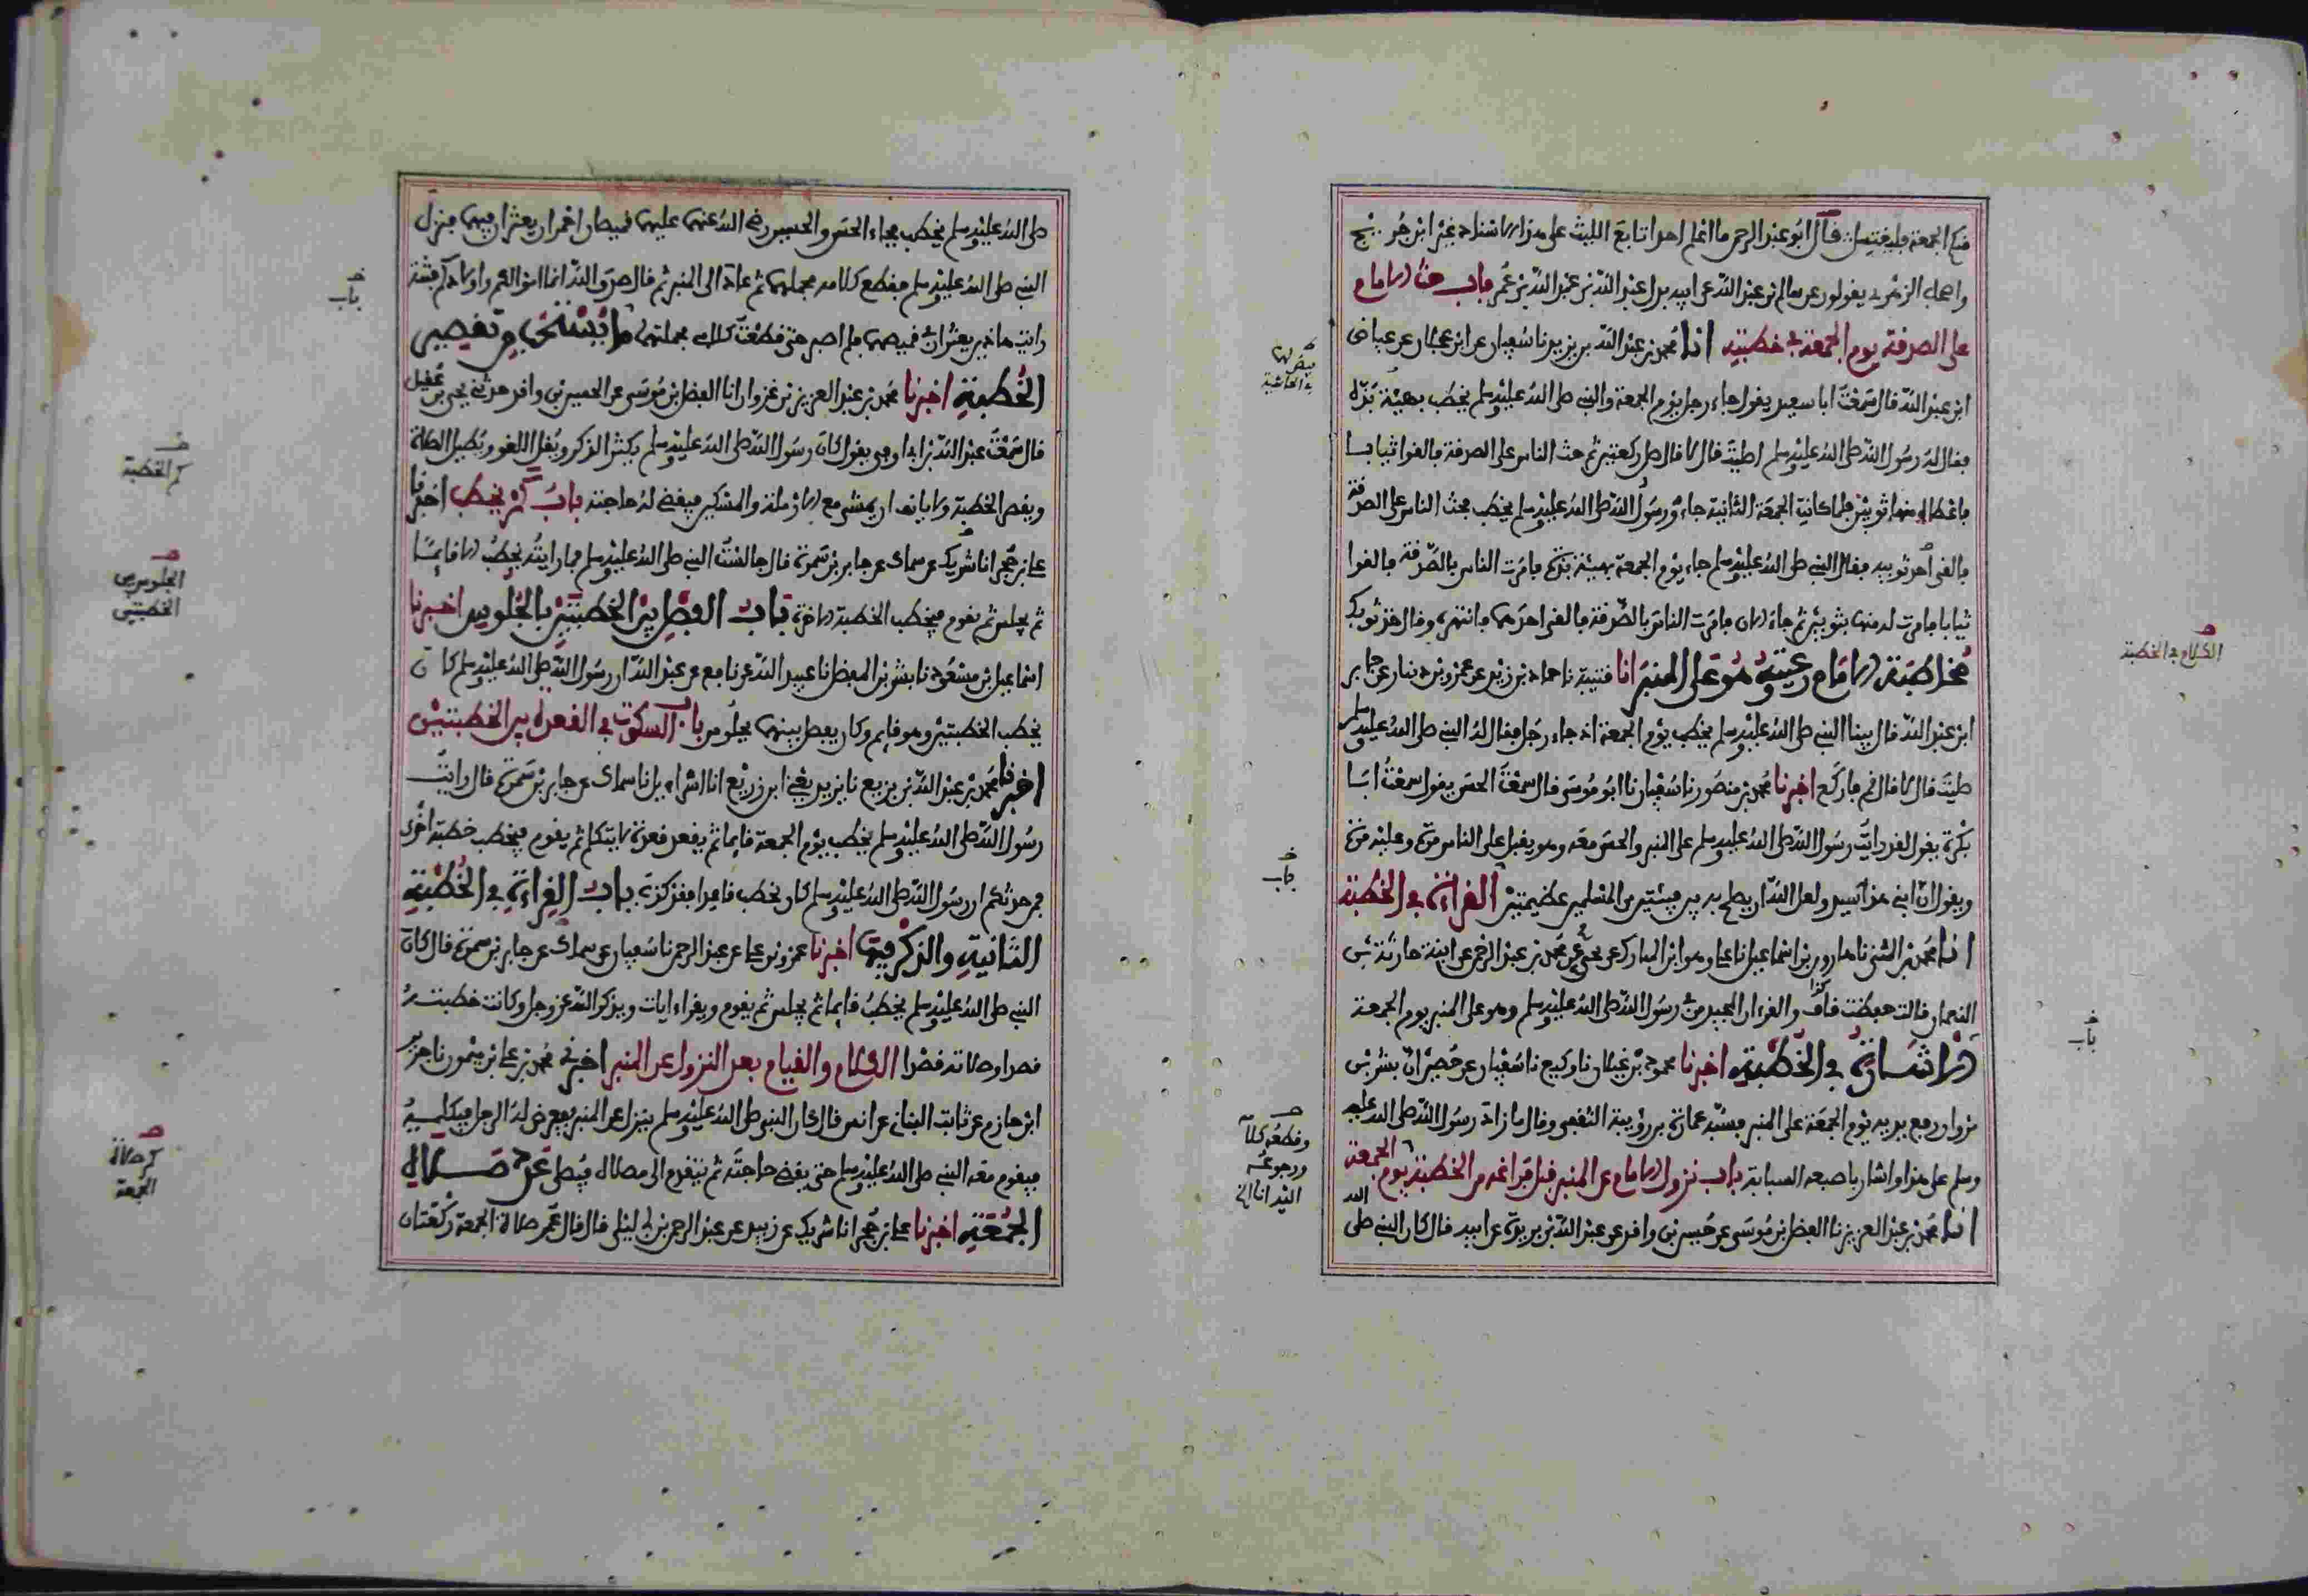 منكم الجمعة فليغتسل قال ابو عبد الرحمن ما اعلم احدا تابع الليث على هذا الاسناد غير ابن جريج
واصحاب الزهري يقولون عن سالم بن عبد الله عن ابيه بدل عبد الله بن عبد الله بن عمر باب حث الامام
على الصدقة يوم الجمعة في خطبته انا محمد بن عبد الله بن يزيد نا سفيان عن ابن عجلان عن عياض
ابن عبد الله قال سمعت ابا سعيد يقول جاء رجل يوم الجمعة والنبي صلى الله عليه وسلم يخطب بهيئة بذة
فقال له رسول الله صلى الله عليه وسلم اصليت قال لا قال صل ركعتين ثم حث الناس على الصدقة فالقوا ثيابا
فاعطاه منها ثوبين فلما كانت الجمعة الثانية جاء ورسول الله صلى الله عليه وسلم يخطب فحث الناس على الصدقة
فالقى احد ثوبيه فقال النبي صلى الله عليه وسلم جاء يوم الجمعة بهيئة بذة فامرت الناس بالصدقة فالقوا
ثيابا فامرت له منها بثوبين ثم جاء الان فامرت الناس بالصدقة فالقى احدهما فانتهره وقال خذ ثوبك
مخاطبة الامام رعيته وهو على المنبر انا قتيبة نا حماد بن زيد عن عمرو بن دينار عن جابر
ابن عبد الله قال بينا النبي صلى الله عليه وسلم يخطب يوم الجمعة اذ جاء رجل فقال له النبي صلى الله عليه وسلم
صليت قال لا قال قم فاركع اخبرنا محمد بن منصور نا سفيان نا ابو موسى قال سمعت الحسن يقول سمعت ابا
بكرة يقول لقد رايت رسول الله صلى الله عليه وسلم على المنبر والحسن معه وهو يقبل على الناس مرة وعليه مرة
ويقول ان ابني هذا سيد ولعل الله ان يصلح به بين فئتين من المسلمين عظيمتين القراءة في الخطبة
انا محمد بن المثنى نا هارون بن اسماعيل نا علي وهو ابن المبارك عن يحيى عن محمد بن عبد الرحمن عن ابنة حارثة بن
النعمان قالت حفظت قاف والقرءان المجيد من رسول الله صلى الله عليه وسلم وهو على المنبر يوم الجمعة
الاشارة في الخطبة اخبرنا محمود بن غيلان نا وكيع نا سفيان عن حصين ان بشر بن
مروان رفع يديه يوم الجمعة على المنبر فسبه عمارة بن رويبة الثقفي وقال ما زاد رسول الله صلى الله عليه
وسلم على هذا واشار باصبعه السبابة باب نزول الامام عن المنبر قبل فراغه من الخطبة يوم الجمعة
انا محمد بن عبد العزيز نا الفضل بن موسى عن حسين بن واقد عن عبد الله بن بريدة عن ابيه قال كان النبي صلى الله
الكلام في الخطبة
خ باب
صلى الله عليه وسلم يخطب فجاء الحسن والحسين رضي الله عنهما عليهما قميصان احمران يعثران فيهما فنزل
النبي صلى الله عليه وسلم فقطع كلامه فحملهما ثم عاد الى المنبر ثم قال صدق الله انما اموالكم واولادكم فتنة
رايت هاذين يعثران في قميصهما فلم اصبر حتى قطعت كلامي فحملتهما ما يستحب من تقصير
الخطبة اخبرنا محمد بن عبد العزيز بن غزوان انا الفضل بن موسى عن الحسين بن واقد حدثني يحيى بن عقيل
قال سمعت عبد الله بن ابي اوفى يقول كان رسول الله صلى الله عليه وسلم يكثر الذكر ويقل اللغو ويطيل الصلاة
ويقصر الخطبة ولا يانف ان يمشي مع الارملة والمسكين فيقضي له حاجته باب كم يخطب اخبرنا
علي بن حجر انا شريك عن سماك عن جابر بن سمرة قال جالست النبي صلى الله عليه وسلم فما رايته يخطب الا قائما
ثم يجلس ثم يقوم فيخطب الخطبة الاخرة باب الفصل بين الخطبتين بالجلوس اخبرنا
اسماعيل بن مسعود نا بشر بن المفضل نا عبيد الله عن نافع عن عبد الله ان رسول الله صلى الله عليه وسلم كان
يخطب الخطبتين وهو قايم وكان يفصل بينهما بجلوس باب السكوت في القعدة بين الخطبتين
اخبرنا محمد بن عبد الله بن بزيع نا يزيد يعني ابن زريع انا اسراءيل نا سماك عن جابر بن سمرة قال رايت
رسول الله صلى الله عليه وسلم يخطب يوم الجمعة قايما ثم يقعد قعدة لا يتكلم ثم يقوم فيخطب خطبة اخرى
فمن حدثكم ان رسول الله صلى الله عليه وسلم كان يخطب قاعدا فقد كذب باب القراءة في الخطبة
الثانية والذكر فيها اخبرنا عمرو بن علي عن عبد الرحمن نا سفيان عن سماك عن جابر بن سمرة قال كان
النبي صلى الله عليه وسلم يخطب قايما ثم يجلس ثم يقوم ويقراء ايات ويذكر الله عز وجل وكانت خطبته
قصدا وصلاته قصدا الكلام والقيام بعد النزول عن المنبر اخبرني محمد بن علي بن ميمون نا جرير
ابن حازم عن ثابت البناني عن انس قال كان النبي صلى الله عليه وسلم ينزل عن المنبر فيعرض له الرجل فيكلمه
فيقوم معه النبي صلى الله عليه وسلم حتى يقضي حاجته ثم يتقدم الى مصلاه فيصلي عدد صلاة
الجمعة اخبرنا علي بن حجر انا شريك عن زبيد عن عبد الرحمن بن ابي ليلى قال قال عمر صلاة الجمعة ركعتان
في الحاشية
خ باب
وقطعه كلامه
ورجوعه
خ باب
كم الخطبة
الجلوس بين
الخطبتين
كم صلاة
الجمعة